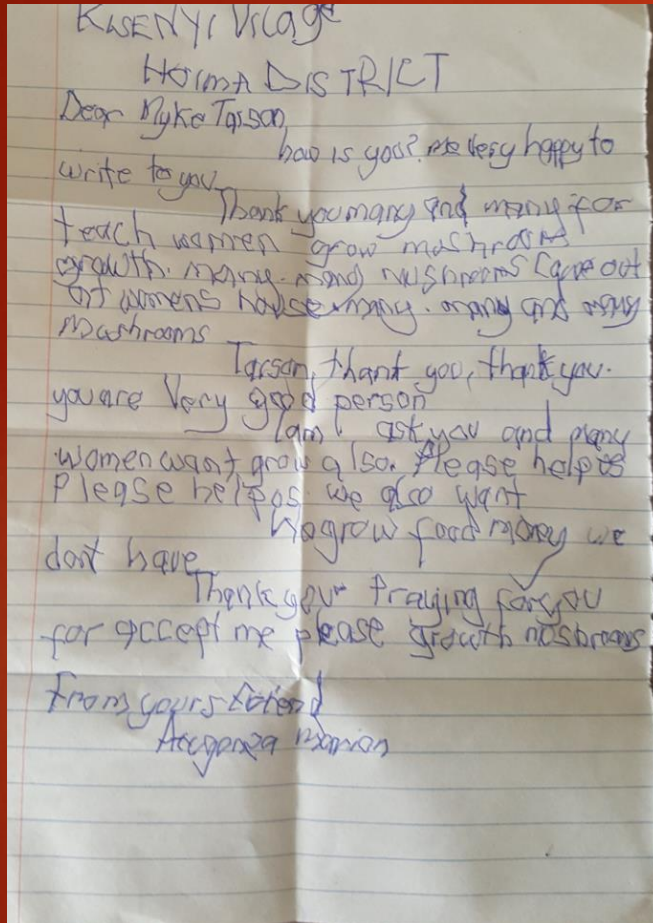 KISENYI Vilage
Hoima DISTRICT
Dear Myke Tarson
how is you? me very happy to
write to you
Thank you many and many for
teach women grow mashrooms
growth. many. many mushrooms came out
at womens house many. many and many
mashrooms
Tarson, thank you, thank you.
you are Very good person
I am ask you and many
women want grow also. Please help os
Please help os we also want
to grow food money we
dont have
Thank you Praying for you
for accept me please growth mushrooms
From yours friend